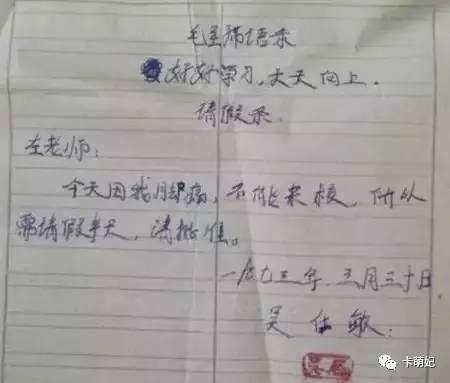 毛主席语录
好好学习,天天向上.
请假条.
左老师:
今天因我脚痛,不能来校,所以
需请假半天,请批准。
一九七三年 三月三十日
吴仕敏.
卡萌妃